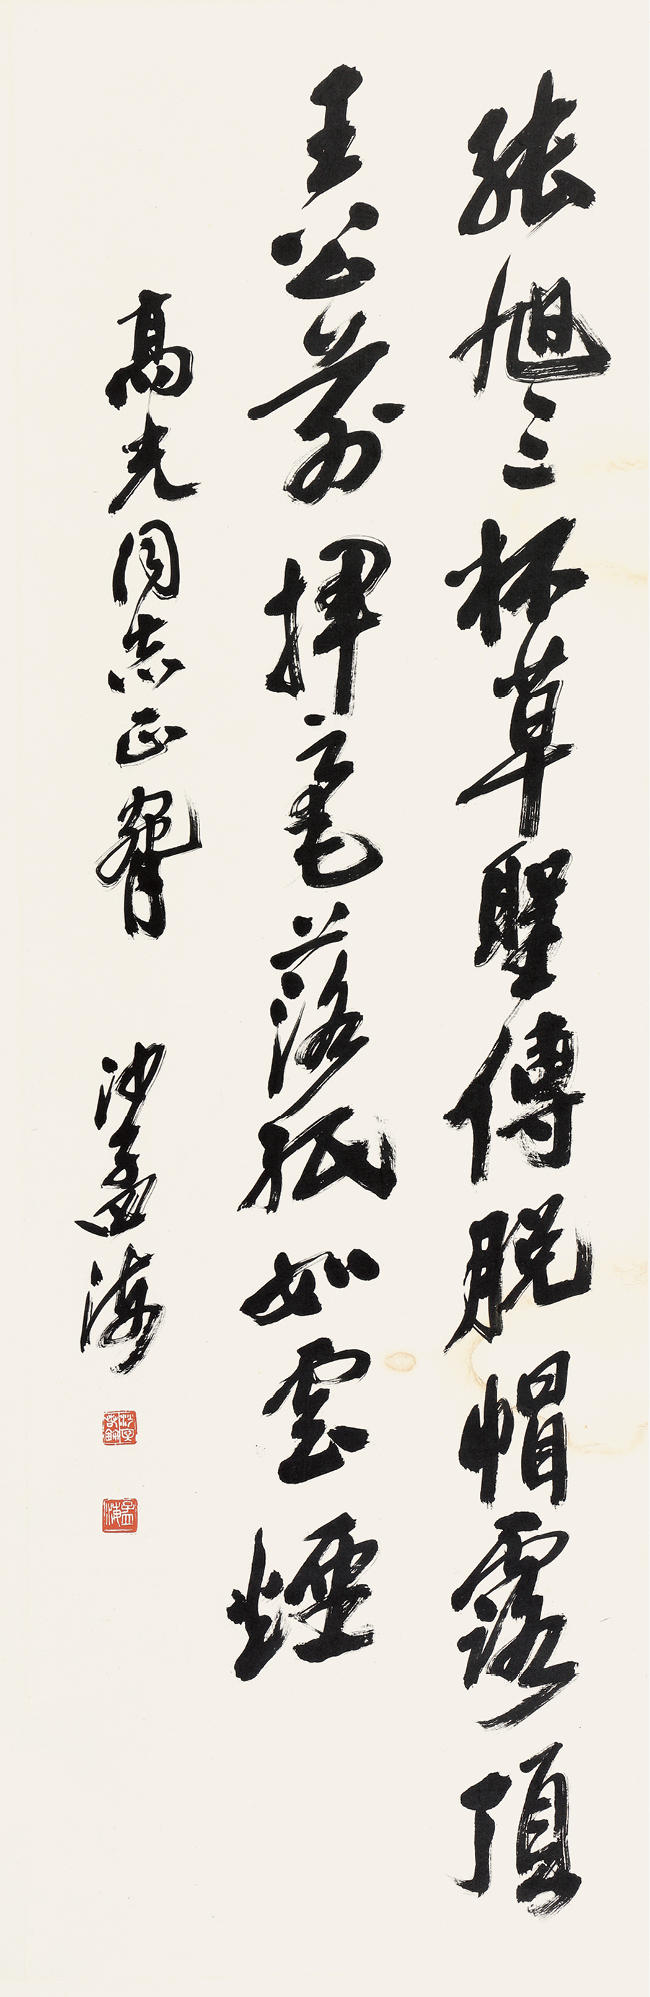 張旭三杯草聖傳脱帽露頂
王公前揮毫落紙如雲煙
高光同志正臂 沙孟海
孟海